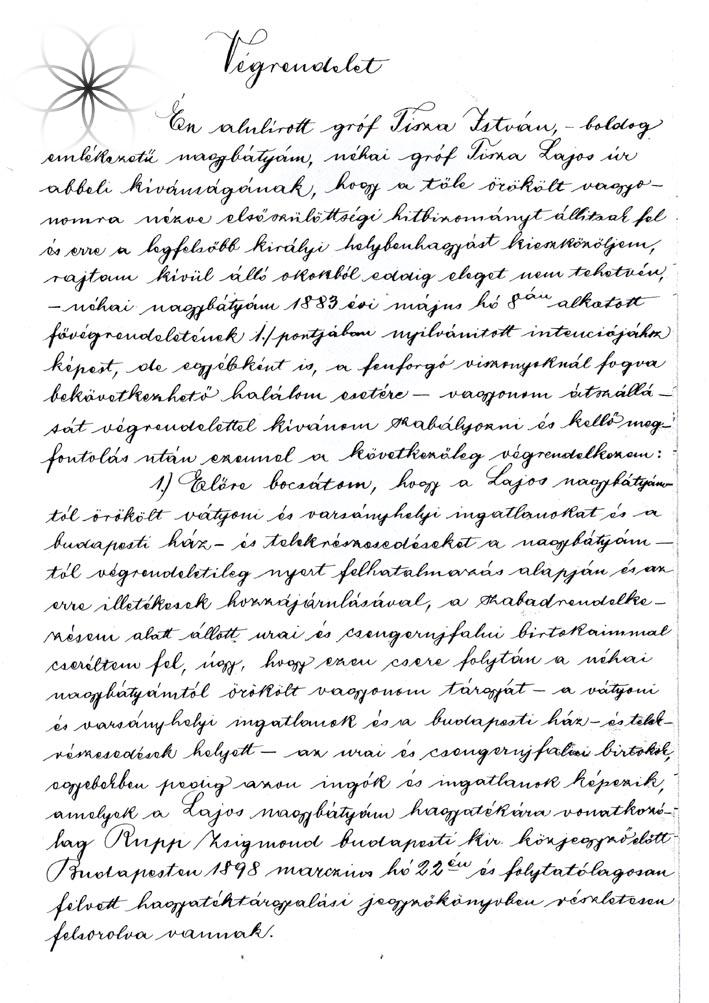 Végrendelet
Én alulírott gróf Tisza István, – boldog
emlékezetű nagybátyám, néhai gróf Tisza Lajos úr
abbeli kívánságának, hogy a tőle örökölt vagyo-
nomra nézve elsőszülöttségi hitbizományt állítsak fel
és erre a legfelsőbb királyi helybenhagyást kieszközöljem,
rajtam kívül álló okokból eddig eleget nem tehetvén,
– néhai nagybátyám 1883 évi május hó 8án alkotott
fővégrendeletének 1./ pontjában nyilvánított intenciójához
képest, de egyébként is, a fenforgó viszonyoknál fogva
bekövetkezhető halálom esetére – vagyonom átszállá-
sát végrendelettel kívánom szabályozni és kellő meg-
fontolás után ezennel a következőleg végrendelkezem:
1.) Előre bocsátom, hogy a Lajos nagybátyám-
tól örökölt vátyoni és varsányhelyi ingatlanokat és a
budapesti ház- és telekrészesedéseket a nagybátyám-
tól végrendeletileg nyert felhatalmazás alapján és az
erre illetékesek hozzájárulásával, a szabadrendelke-
zésem alatt állott urai és csengerujfalui birtokaimmal
cseréltem fel, úgy, hogy ezen csere folytán a néhai
nagybátyámtól örökölt vagyonom tárgyát – a vátyoni
és varsányhelyi ingatlanok és a budapesti ház- és telek-
részesedések helyett – az urai és csengerujfalui birtokok,
egyebekben pedig azon ingók és ingatlanok képezik,
amelyek a Lajos nagybátyám hagyatékára vonatkozó-
lag Rupp Zsigmond budapesti kir. közjegyző előtt
Budapesten 1898 marczius hó 22én és folytatólagosan
felvett hagyatéktárgyalási jegyzőkönyvben részletesen
felsorolva vannak.